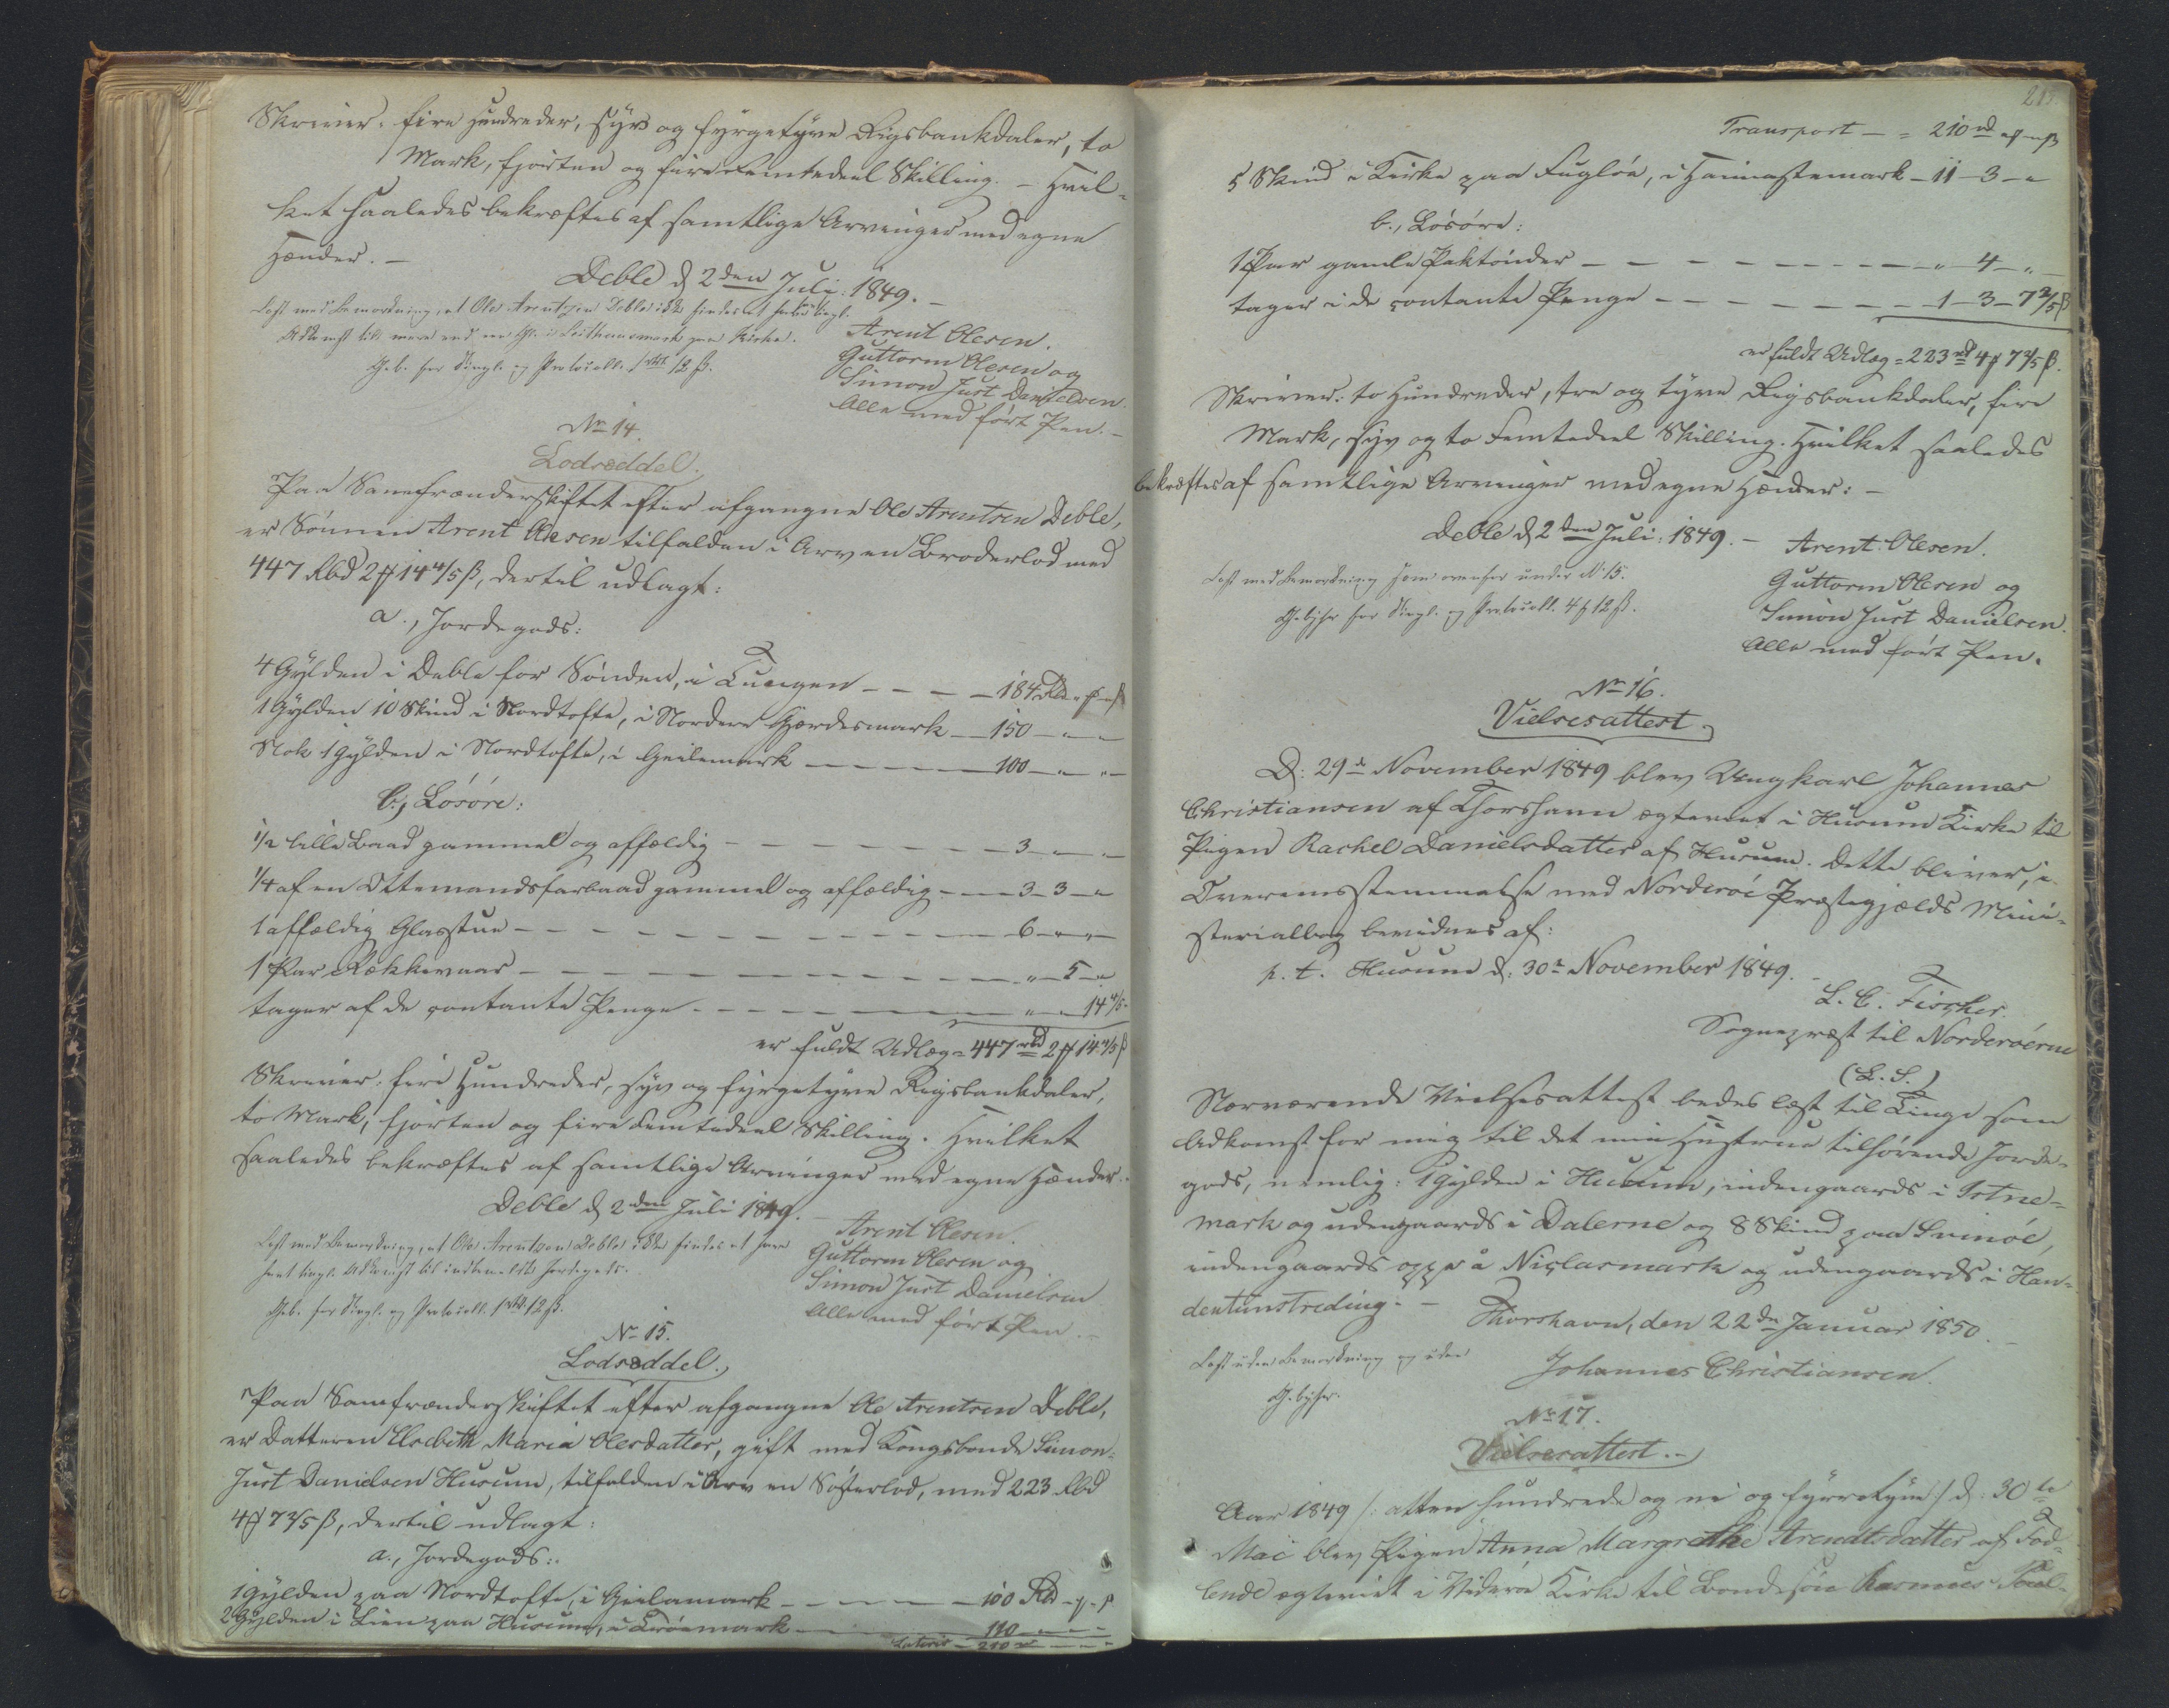 Skriver: fire Hundreder, syv og fyrgetyve Rigsbankdaler, to
Mark, fjorten og fire Femtedeel Skilling. – Hvil-
ket saaledes bekræftes af samtlige Arvinger med egne
Hænder. –
Deble d 2den Juli: 1849. –
Læst med Bemærkning, at Ole Arentsen Deble ikke findes at have tingl.
Adkomst til mere end en Gl. i paa Kirke.
Geb. for Tingl. og Protocoll. 1 rbd. 12 ß.
Arent Olesen.
Guttorm Olesen og
Simon Just Danielsen.
Alle med ført Pen. –
No 14.
Lodseddel.
Paa Samfrænderskiftet efter afgangne Ole Arentsen Deble,
er Sønnen Arent Olesen tilfalden i Arv en Broderlod med
447 Rbd 2 ₰ 14 4/5 ß, dertil udlagt:
a., Jordegods:
4 Gylden i Deble for Sønden, i Tungen – – – – 184 Rbd „ ₰ „ ß
1 Gylden 10 Skind i Nordtofte, i Nordere Gjærdesmark – 150 – „ – „
Nok 1 Gylden i Nordtofte, i Geilemark – – – – 100 – „ – „
b., Løsøre:
1/2 lille Baad gammel og affældig – – – – – – 3 – „ – „
1/4 af en Ottemandsfarbaad gammel og affældig – – 3 – 3 – „
1 affældig Glasstue – – – – – – – – 6 – „ – „
1 Par Rokkevaar – – – – – – – – „ – 5 – „
tager af de contante Penge – – – – – – „ – „ – 14 4/5 -
er fuldt Udlæg = 447 rbd 2 ₰ 14 4/5 ß
Skriver: fire Hundreder, syv og fyrgetyve Rigsbankdaler,
to Mark, fjorten og fire Femtedeel Skilling. Hvilket
saaledes bekræftes af samtlige Arvinger med egne Hænder.
Deble d 2den Juli 1849. –
Læst med Bemærkning, at Ole Arentsen Deble ikke findes at have
havt tingl. Adkomst til indbemeldte Jordegods.
Geb. for Tingl. og Protocoll. 1 rbd. 12 ß.
Arent Olesen.
Guttorm Olesen og
Simon Just Danielsen
Alle med ført Pen. –
No 15.
Lodseddel.
Paa Samfrænderskiftet efter afgangne Ole Arentsen Deble,
er Datteren Elsebeth Maria Olesdatter, gift med Kongsbonde Simon
Just Danielsen Husum, tilfalden i Arv en Søsterlod, med 223 Rbd
4 ₰ 7 2/5 ß, dertil udlagt:
a., Jordegods:
1 Gylden paa Nordtofte, i Geilamark – – – – 100 Rbd „ ₰ „ ß
2 Gylden i Lien paa Husum, i – – 110 – „ – „
Lateris – 210 rd – „ – „
Transport – = 210 rd „ ₰ „ ß
5 Skind i Kirke paa Fugløe, i – 11 – 3 – „
b., Løsøre:
1 Par gamle Paktønder – – – – – – – – „ – 4 – „ –
tager i de contante Penge – – – – – – 1 – 3 – 7 2/5 ß
er fuldt Udlæg = 223 rd 4 ₰ 7 2/5 ß.
Skriver: to Hundreder, tre og tyve Rigsbankdaler, fire
Mark, syv og to Femtedeel Skilling. Hvilket saaledes
bekræftes af samtlige Arvinger med egne Hænder: –
Deble d 2den Juli: 1849. –
Læst med Bemærkning som ovenfor under No 15.
Gebyhr for Tingl. og Protocoll. 4 ₰ 12 ß.
Arent Olesen.
Guttorm Olesen og
Simon Just Danielsen.
Alle med ført Pen.
No 16.
Vielsesattest.
D: 29de November 1849 blev Ungkarl Johannes
Christiansen af Thorshavn ægteviet i Husum Kirke til
Pigen Rachel Danielsdatter af Husum. Dette bliver, i
Overensstemmelse med Norderøe Præstegjælds Mini-
sterialbog bevidnes af:
p. t. Husum d: 30te November 1849.
L. C. Fischer.
Sognepræst til Norderøerne
(L. S.)
Nærværende Vielsesattest bedes læst til Tinge som
Adkomst for mig til det min Hustrue tilhørende Jorde-
gods, nemlig: 1 Gylden i Husum, indengaards i Totne-
mark og udengaards i Dalerne og 8 Skind paa Svinøe,
indengaards oppe i Niclasmark og udengaards i Han-
dentunstreding. –
Thorshavn, den 22de Januar 1850. –
Læst uden Bemærkning og uden
Gebyhr.
Johannes Christiansen.
No 17.
Vielsesattest. –
Aar 1849 /: atten hundrede og ni og fyrretyve :/ d: 30te
Mai blev Pigen Anna Margrethe Arendtsdatter af Fod-
lende ægteviet i Viderø Kirke til Bondesøn Rasmus Poul-